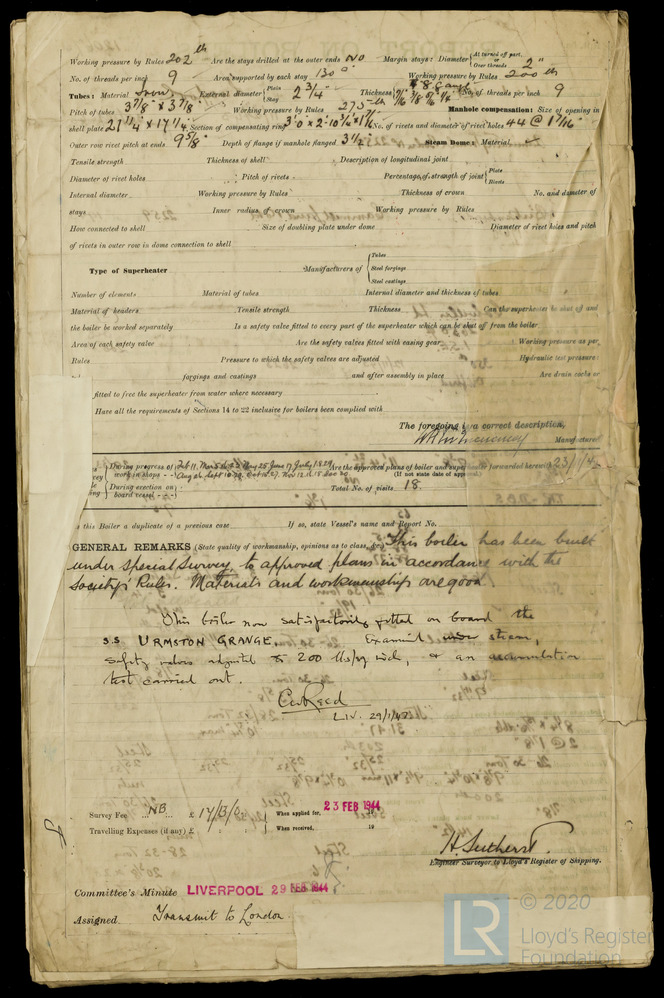 Working pressure by Rules 202 lb Are the stays drilled at the outer ends NO Margin stays: Diameter { At turned off part, or Over threads 2"
No. of threads per inch 9 Area supported by each stay 130 Working pressure by Rules 200 lb
Tubes: Material Iron External diameter { Plain Stay 2 3/4" Thickness { No. of threads per inch 9
Pitch of tubes 3 7/8" x 3 7/8" Working pressure by Rules 275 lb Manhole compensation: Size of opening in
shell plate 21 1/4 x 17 1/4 Section of compensating ring No. of rivets and diameter of rivet holes 44 @ 1 1/16"
Outer row rivet pitch at ends 9 5/8" Depth of flange if manhole flanged 3 1/2 Steam Dome: Material
Tensile strength Thickness of shell Description of longitudinal joint
Diameter of rivet holes Pitch of rivets Percentage of strength of joint { Plate Rivets
Internal diameter Working pressure by Rules Thickness of crown No. and diameter of
stays Inner radius of crown Working pressure by Rules
How connected to shell Size of doubling plate under dome Diameter of rivet holes and pitch
of rivets in outer row in dome connection to shell
Type of Superheater Manufacturers of { Tubes Steel forgings Steel castings
Number of elements Material of tubes Internal diameter and thickness of tubes
Material of headers Tensile strength Thickness Can the superheater be shut off and
the boiler be worked separately Is a safety valve fitted to every part of the superheater which can be shut off from the boiler
Area of each safety valve Are the safety valves fitted with easing gear Working pressure as per
Rules Pressure to which the safety valves are adjusted Hydraulic test pressure:
forgings and castings and after assembly in place Are drain cocks or
fitted to free the superheater from water where necessary
Have all the requirements of Sections 14 to 22 inclusive for boilers been complied with
The foregoing is a correct description,
Manufacturer
During progress of work in shops - - Are the approved plans of boiler and superheater forwarded herewith 23/1/42
(If not state date of approval.)
During erection on board vessel - - - Total No. of visits 18.
Is this Boiler a duplicate of a previous case If so, state Vessel's name and Report No.
GENERAL REMARKS (State quality of workmanship, opinions as to class, &c. This boiler has been built
under special survey, to approved plans in accordance with the
Society's Rules. Materials and workmanship are good.
This boiler now satisfactorily fitted on board the
s.s. URMSTON GRANGE. Examined under steam,
safety valves adjusted to 200 lbs/sq inch, & an accumulation
test carried out.
Reed
LIV. 29/1/43.
Survey Fee ... NB £ 17/3/0 When applied for, 23 FEB 1944
Travelling Expenses (if any) £ When received, 19
H. Sutherst.
Engineer Surveyor to Lloyd's Register of Shipping.
Committee's Minute LIVERPOOL 29 FEB 1944
Assigned Transmit to London
© 2020
LR Lloyd's Register
Foundation